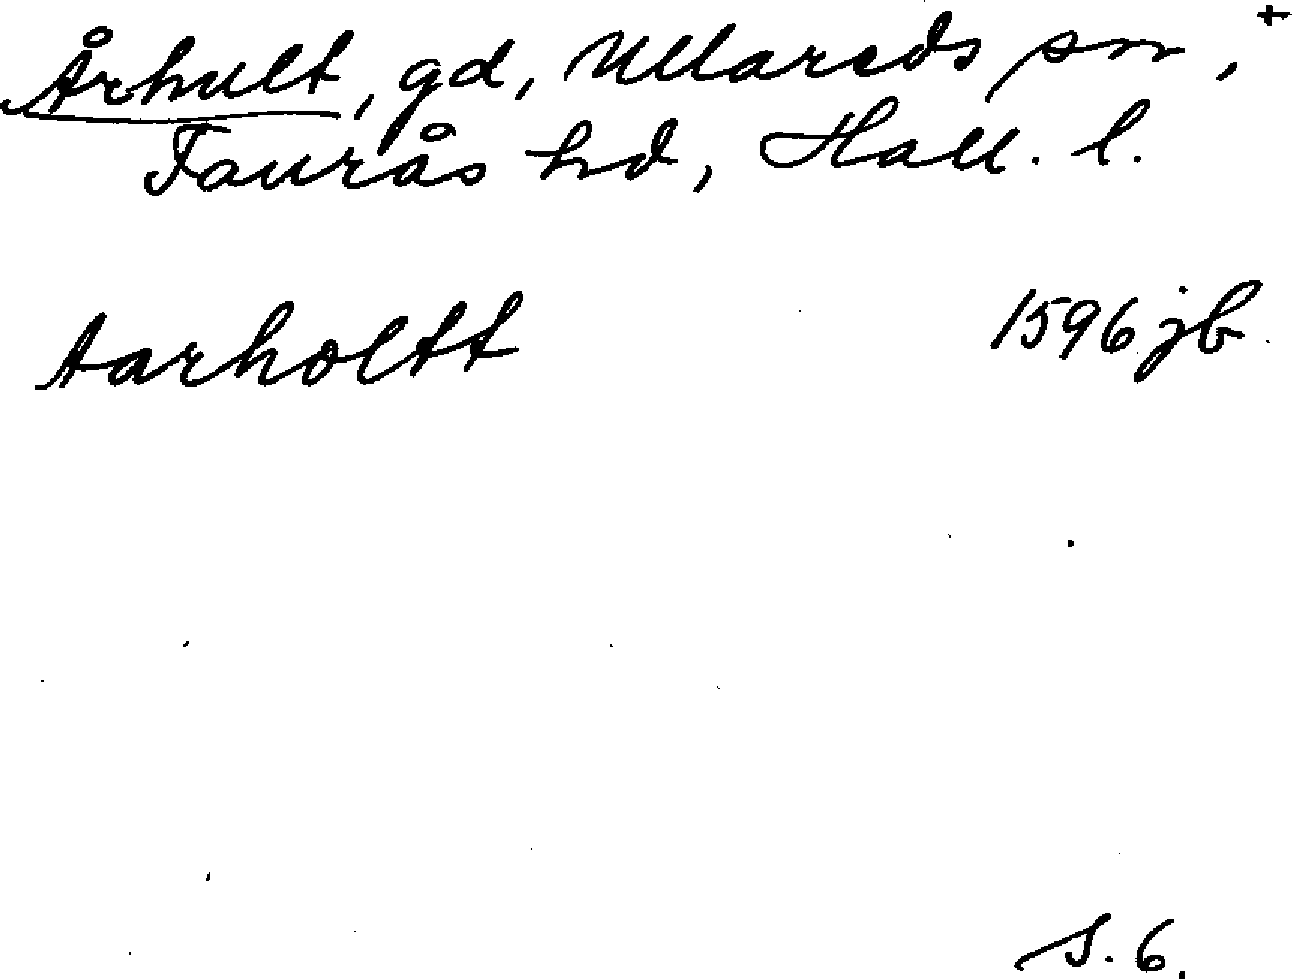 Århult, gd, Ullareds sn, +
Faurås hd, Hall. l.
Aarholtt 1596 jb.
S. 6.